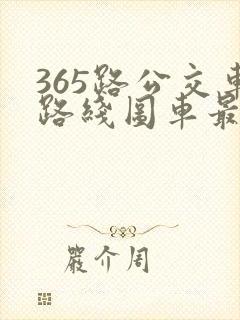 365路公交車
路綫圖車最
嚴介周